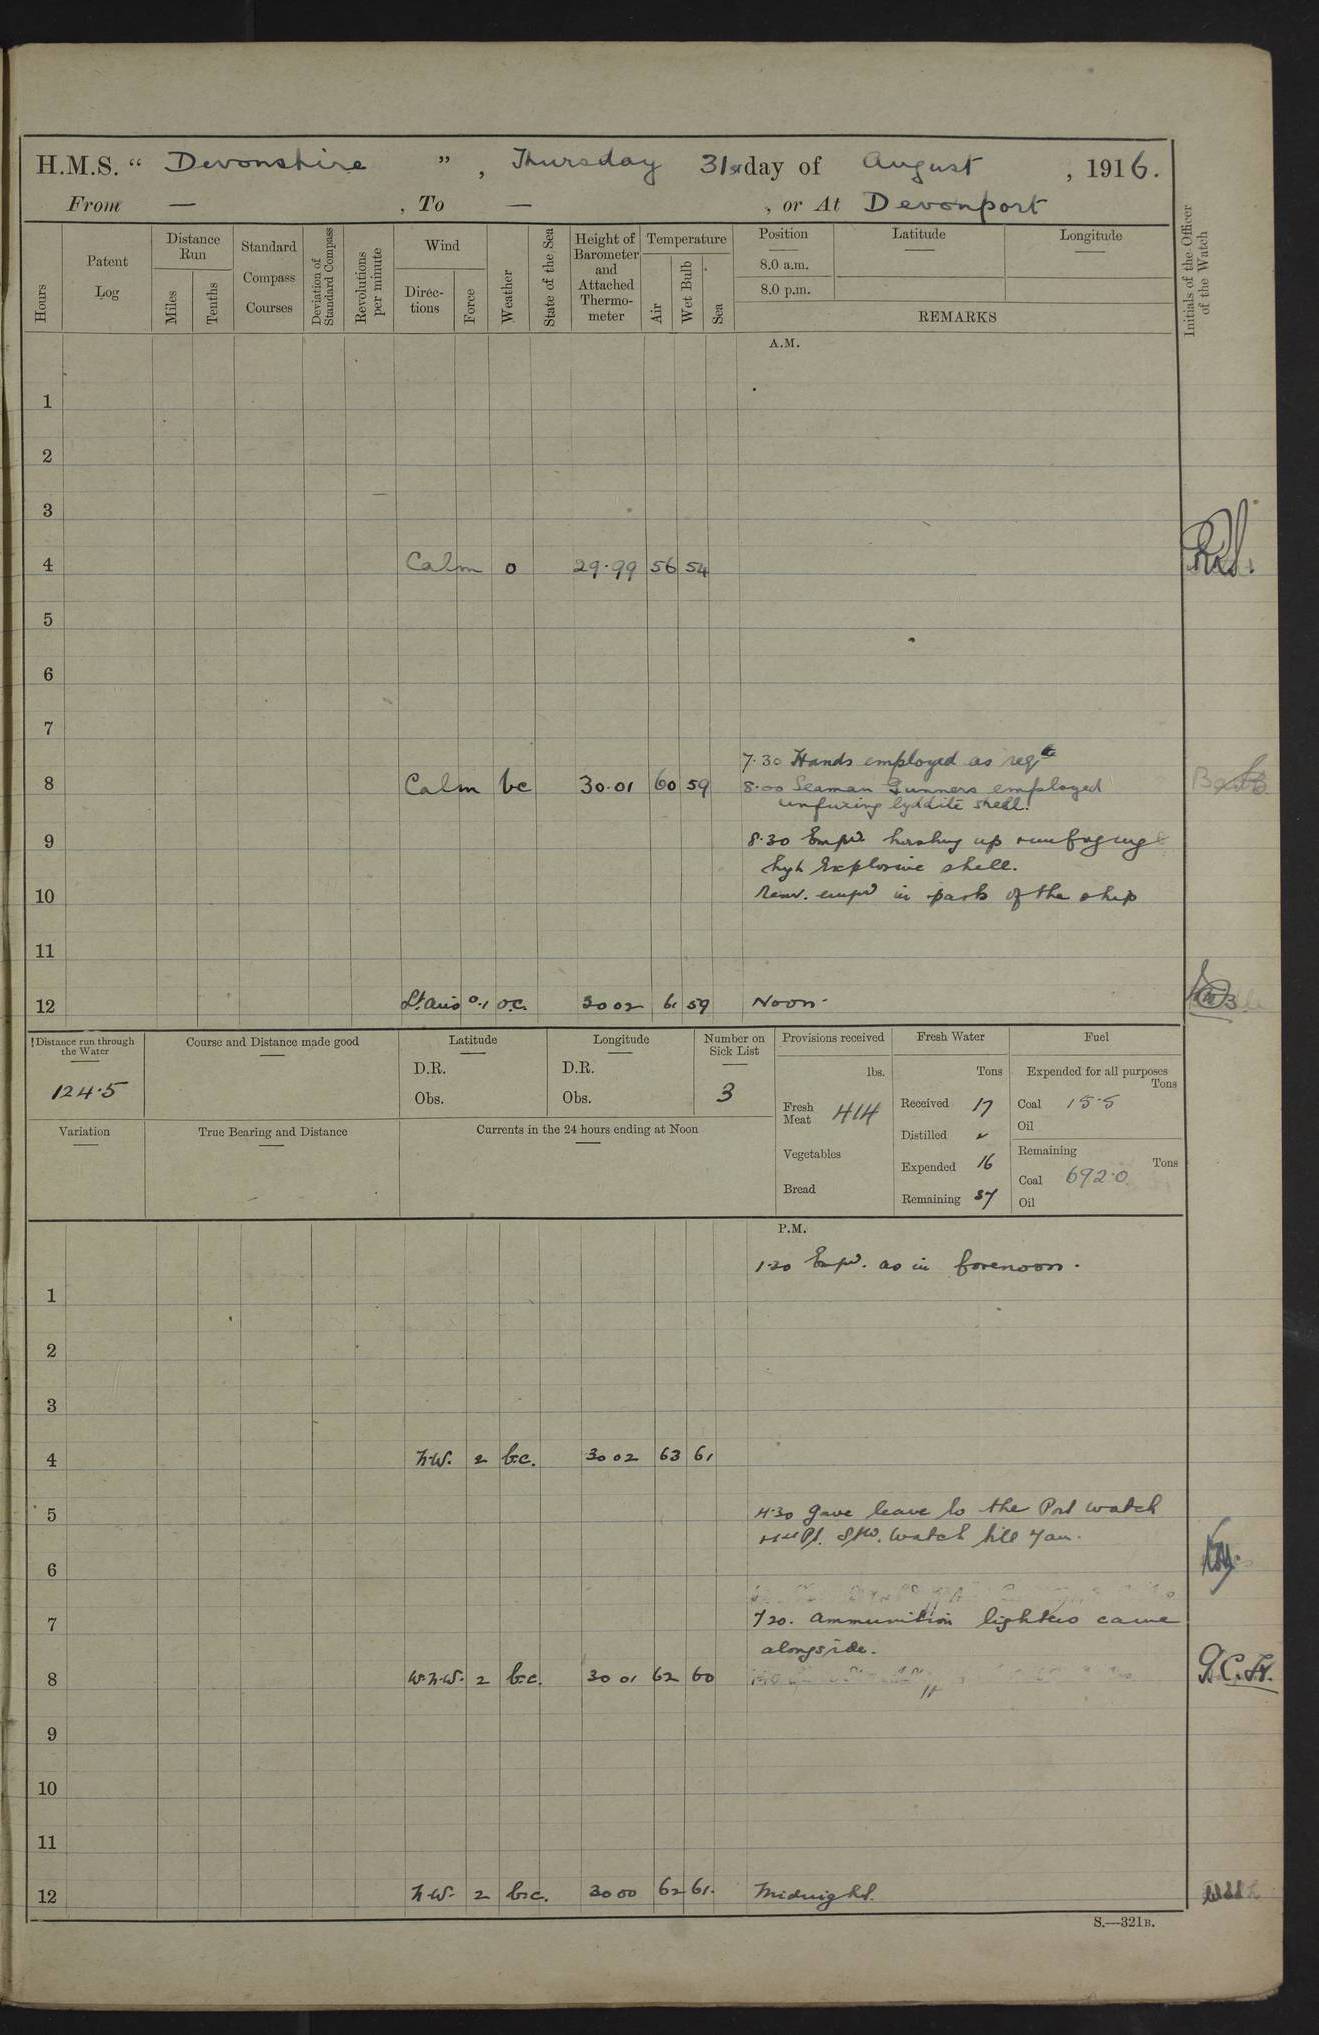 H.M.S. “ Devonshire ”, Thursday 31st day of August , 1916.
From — , To — , or At Devonport
Hours
Patent Log
Distance Run
Miles
Tenths
Standard Compass Courses
Deviation of Standard Compass
Revolutions per minute
Wind
Direc-tions
Force
Weather
State of the Sea
Height of Barometer and Attached Thermo-meter
Temperature
Air
Wet Bulb
Sea
Position
8.0 a.m.
8.0 p.m.
Latitude
Longitude
REMARKS
Initials of the Officer of the Watch
A.M.
1
2
3
4 Calm o 29.99 56 54
5
6
7
7.30 Hands employed as reqte
8 Calm bc 30.01 60 59 8.00 Seaman Gunners employed
unfuzing lyddite shell.
9 8.30 Empd
high Explosive shell.
10 Rem. empd in parts of the ship
11
12 Lt airs 0.1 o.c. 30 02 61 59 Noon.
Distance run through the Water
124.5
Course and Distance made good
Latitude
D.R.
Obs.
Longitude
D.R.
Obs.
Number on Sick List
3
Provisions received
lbs.
Fresh Meat 414
Vegetables
Bread
Fresh Water
Tons
Received 17
Distilled
Expended 16
Remaining 37
Fuel
Expended for all purposes
Tons
Coal 15.5
Oil
Remaining
Tons
Coal 692.0
Oil
Variation
True Bearing and Distance
Currents in the 24 hours ending at Noon
P.M.
1.20 Empd. as in forenoon.
1
2
3
4 N.W. 2 b.c. 30 02 63 61
5 4.30 Gave leave to the Port watch
watch till 7 am.
6
7 7 20. Ammunition lighters came
alongside.
8 W.N.W. 2 b.c. 30 01 62 60
9
10
11
12 N.W. 2 b.c. 30 00 62 61. Midnight.
S.—321B.